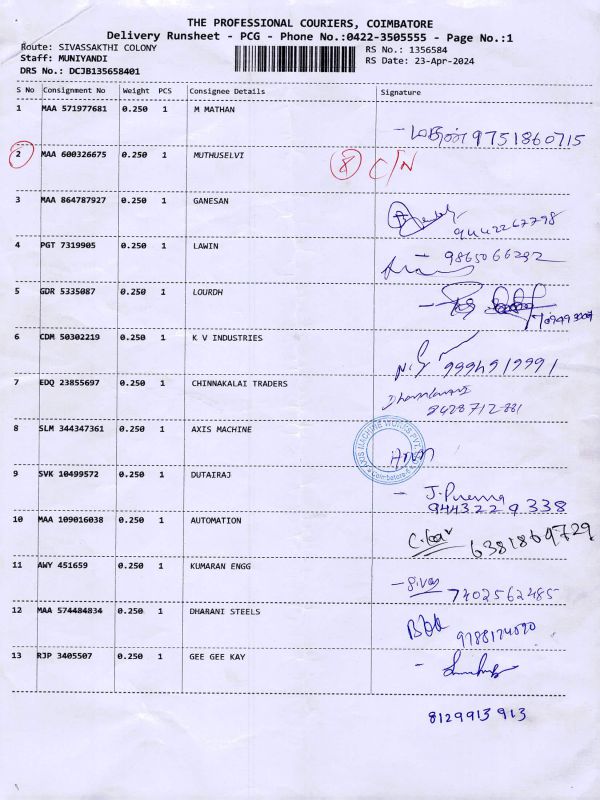 THE PROFESSIONAL COURIERS, COIMBATORE
Delivery Runsheet - PCG - Phone No.:0422-3505555 - Page No.:1
Route: SIVASSAKTHI COLONY RS No.: 1356584
Staff: MUNIYANDI RS Date: 23-Apr-2024
DRS No.: DCJB135658401
S No Consignment No Weight PCS Consignee Details Signature
1 MAA 571977681 0.250 1 M MATHAN
- மதன் 9751860715
2 MAA 600326675 0.250 1 MUTHUSELVI 8 C/N
3 MAA 864787927 0.250 1 GANESAN
9442267798
4 PGT 7319905 0.250 1 LAWIN
- 9865066292
5 GDR 5335087 0.250 1 LOURDH
6 CDM 50302219 0.250 1 K V INDUSTRIES
7 EDQ 23855697 0.250 1 CHINNAKALAI TRADERS
8428712881
8 SLM 344347361 0.250 1 AXIS MACHINE
AXIS MACHINE WORKS PVT
Coimbatore-6
9 SVK 10499572 0.250 1 DUTAIRAJ
- J. Prema
944322 9 338
10 MAA 109016038 0.250 1 AUTOMATION
6381869729
11 AWY 451659 0.250 1 KUMARAN ENGG
- Siva
7402562485
12 MAA 574484834 0.250 1 DHARANI STEELS
13 RJP 3405507 0.250 1 GEE GEE KAY
8129913 913